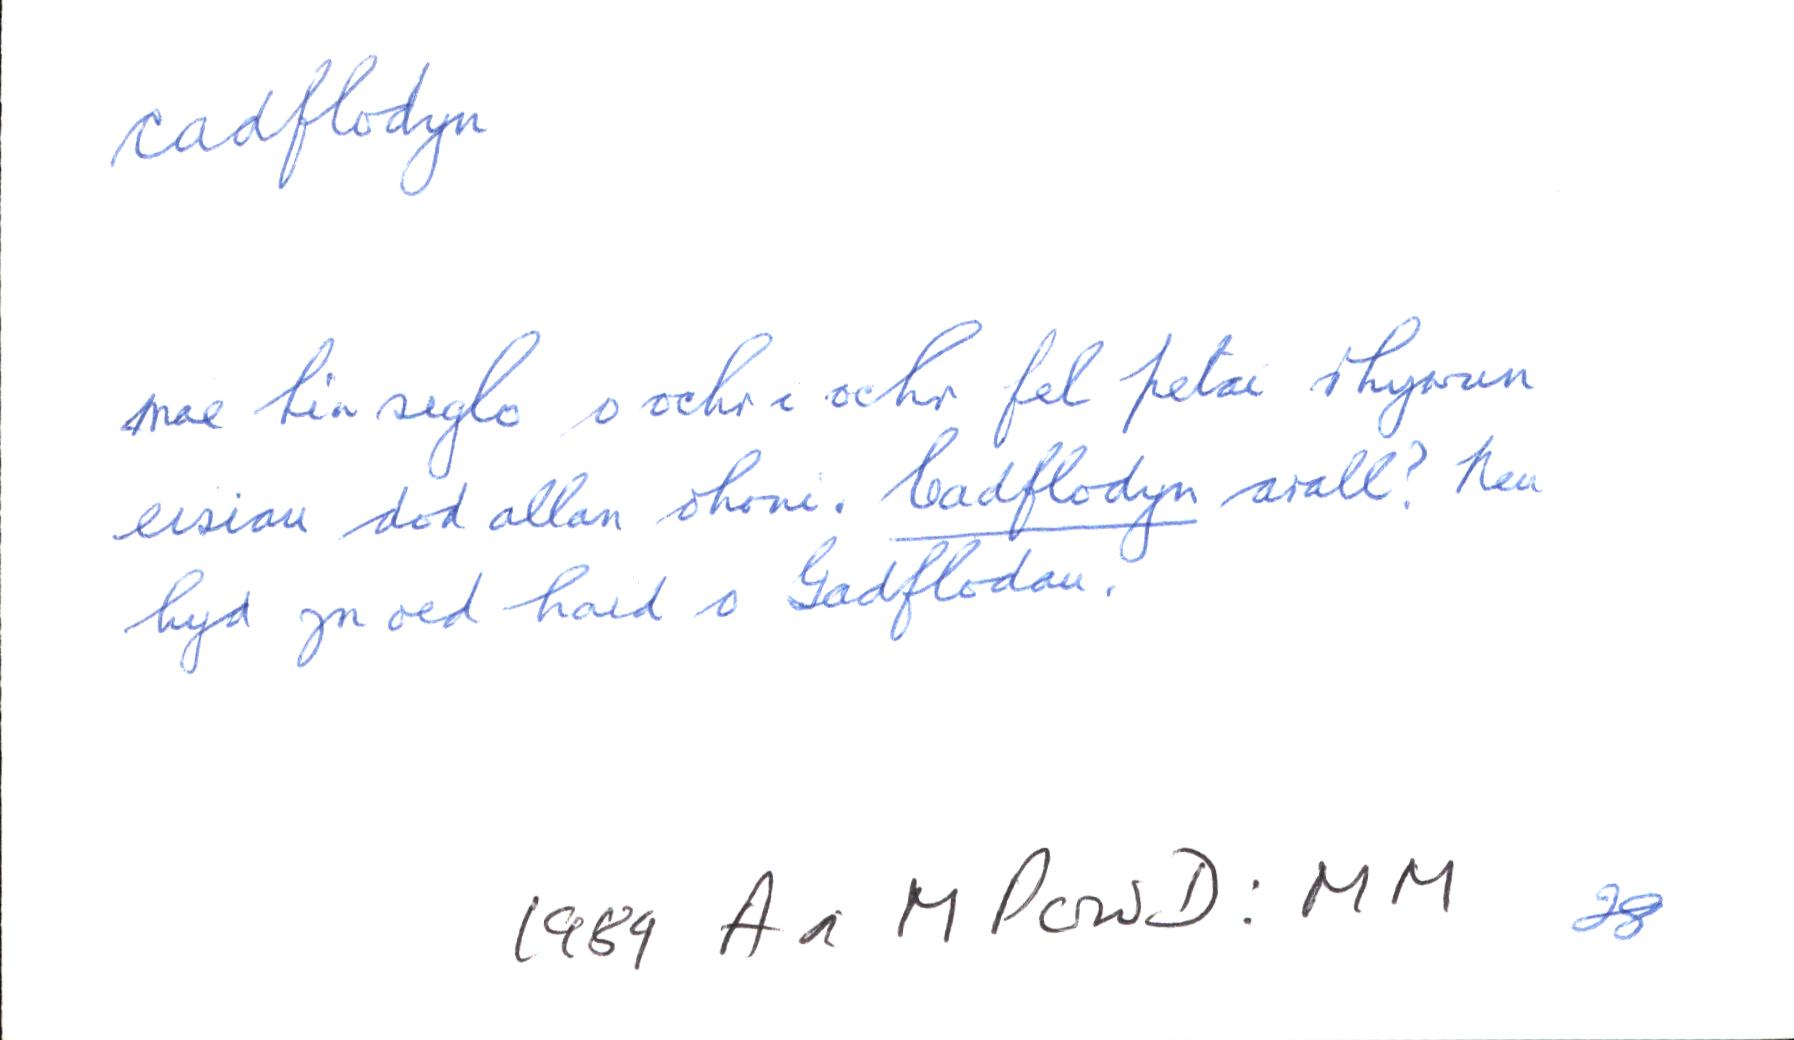 cadflodyn
mae hi'n siglo o ochr i ochr fel petai rhywun
eisiau dod allan ohoni. Cadflodyn arall? Neu
hyd yn oed haid o Gadflodau.
1989 A a M PowD: MM 28